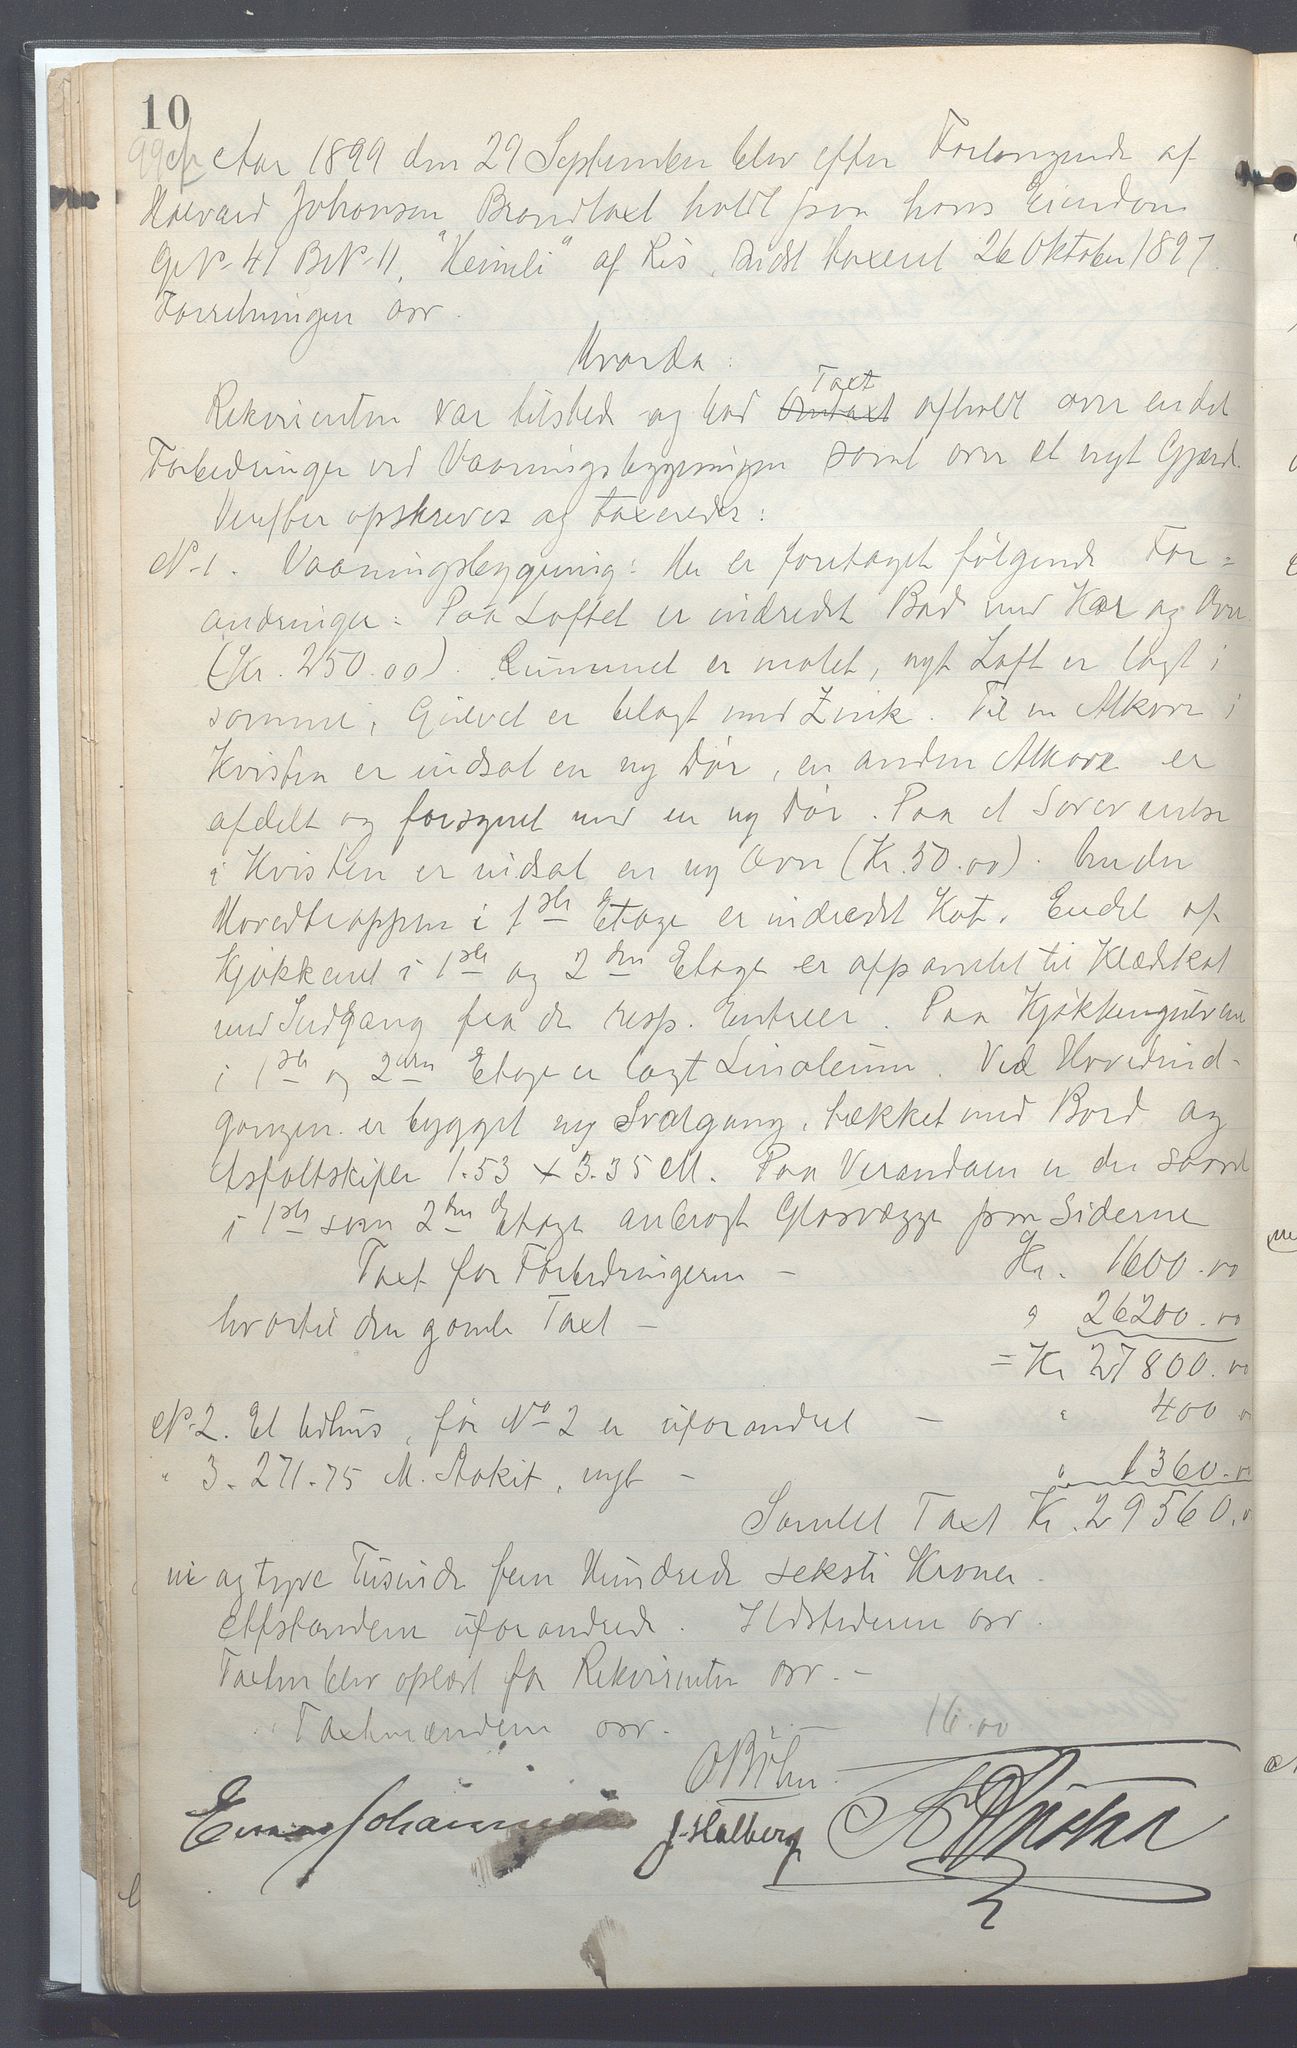 10
Aar 1899 den 29 September blev efter Forlangende af
Halvard Johansen Brandtaxt holdt paa hans Eiendom
GN 41 BN 11, "Heimli" af Ris, sidst taxeret 26 Oktober 1897.
Forretningen osv.
Hvorda:
Rekvirenten var tilstede og bad Omtaxt Taxt afholdt over endel
Forbedringer ved Vaaningsbygningen samt over et nyt Gjærde.
Derefter opskreves og taxeredes:
N-1. Vaaningsbygning: Her er foretaget følgende For=
andringer: Paa Loftet er indredet Bad med Kar og Ovn
(Kr. 250.00). Rummet er malet, nyt Loft er lagt i
samme, Gulvet er belagt med Zink. Til en Alkove i
Kvisten er indsat en ny Dør, en anden Alkove er
afdelt og forsynet med en ny Dør. Paa et Soveværelse
i Kvisten er indsat en ny Ovn (Kr. 50.00). Under
Hovedtrappen i 1ste Etage er indredet Kot. Endel af
Kjøkkenet i 1ste og 2den Etage er afpanelet til Klædskot
med Indgang fra de resp. Entreer. Paa Kjøkkengulvene
i 1ste og 2den Etage er lagt Linoleum. Ved Hovedind-
gangen er bygget ny Svalgang, tækket med Bord og
Asfaltskifer 1.53 x 3.35 M. Paa Verandaen er der saavel
i 1ste som 2den Etage anbragt Glasvægge paa Siderne
Taxt for Forbedringerne - Kr. 1600.00
hvortil den gamle Taxt - " 26200.00
= Kr 27800.00
N-2. Et Udhus, før No 2 er uforandret - " 400 00
" 3. 271.75 M. Stakit, nyt - " 1360.00
Samlet Taxt Kr. 29560.00
ni og tyve Tusinde fem Hundrede seksti Kroner.
Afstandene uforandrede. Ildstederne osv.
Taxten blev oplæst for Rekvirenten osv. -
Taxtmændene osv. 16.00
O Bøhn
J. Halberg